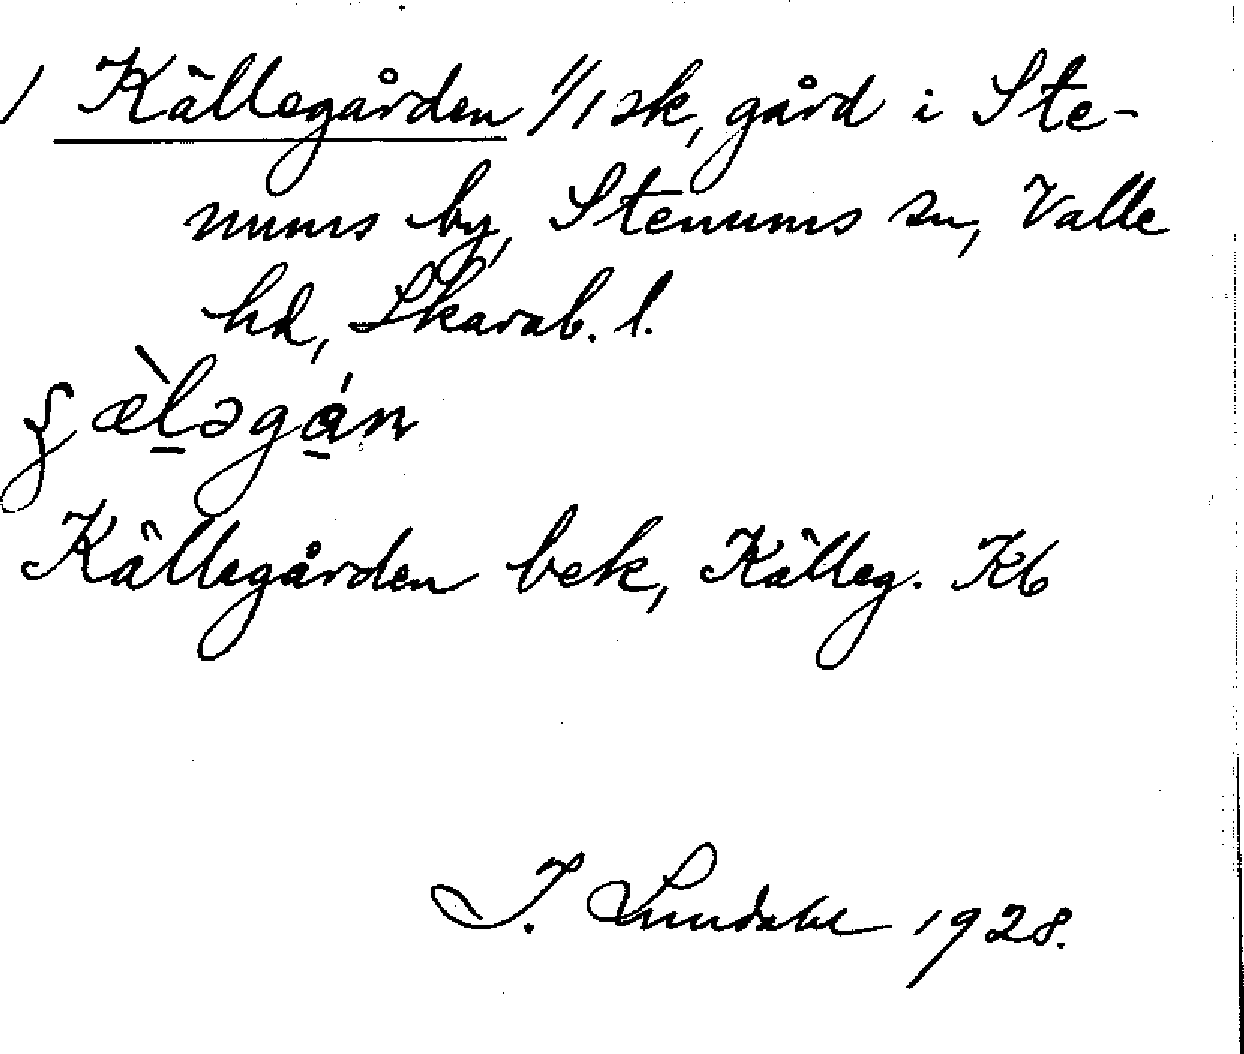 / Källegården 1/1 sk, gård i Ste-
nums by, Stenums sn, Valle
hd, Skarab. l.
ʂæ̀lləgán
Källegården bek, Källeg. Kb
I. Lundahl 1928.